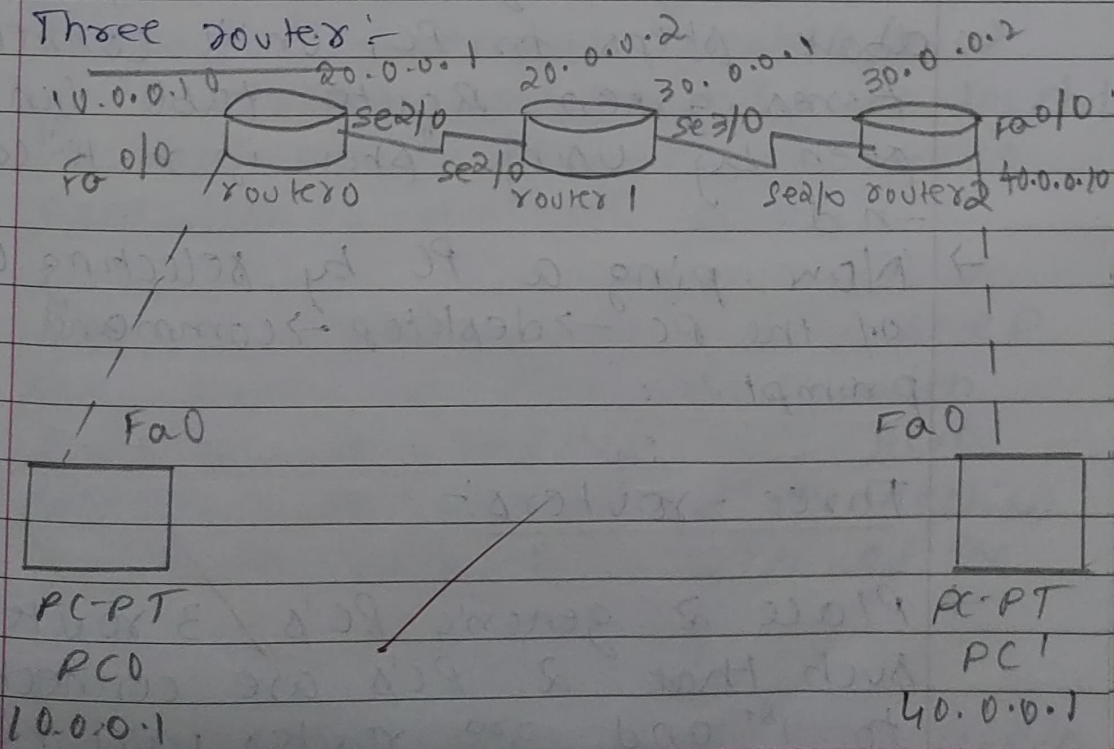 Three router :-
10.0.0.10 20.0.0.1 20.0.0.2 30.0.0.1 30.0.0.2
Fa 0/0 se2/0 se2/0 se3/0 se2/0 Fa0/0
router0 router 1 router2 40.0.0.10
Fa0 Fa0
PC-PT PC-PT
PC0 PC1
10.0.0.1 40.0.0.1